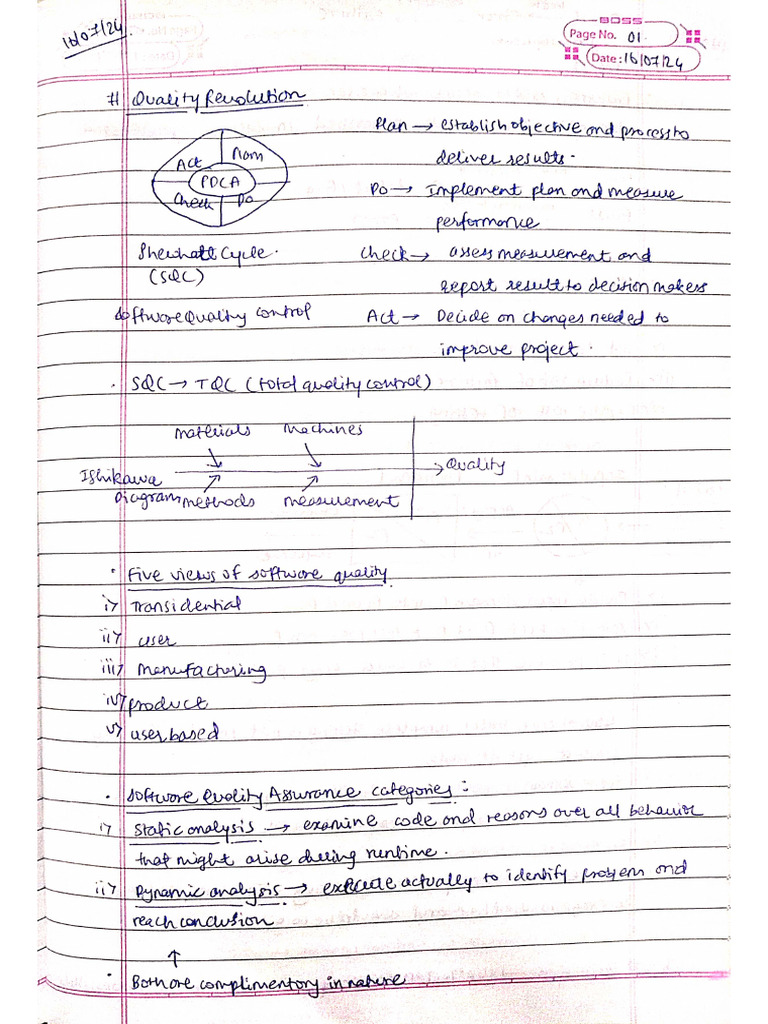 16/07/24
BOSS
Page No. 01
Date: 16/07/24
# Quality Revolution
Act Plan
PDCA
Check Do
Shewhatt Cycle.
(SQC)
Software Quality control
Plan → establish objective and process to
deliver results.
Do → Implement plan and measure
performance
Check → assess measurement and
report result to decision makers
Act → Decide on changes needed to
improve project.
. SQC → TQC (total quality control)
materials machines
Ishikawa → Quality
Diagram methods measurement
. Five views of software quality
i> Transidential
ii> user
iii> manufacturing
iv> product
v> user based
. Software Quality Assurance categories :
i> Static analysis → examine code and reasons over all behavior
that might arise during runtime.
ii> Dynamic analysis → execute actually to identify problem and
reach conclusion
↑
. Both are complimentory in nature